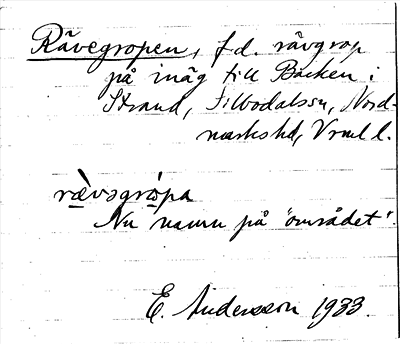 Rävegropen, f.d. rävgrop
på inäg till Backen i
Strand, Silbodalssn, Nord-
markshd, Vrml l.
rævəgro̱pa
Nu namn på "området".
E. Andersson 1933.